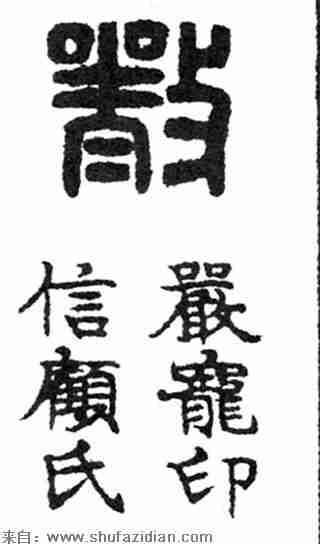 嚴
嚴寵印
信顧氏
来自：www.shufazidian.com